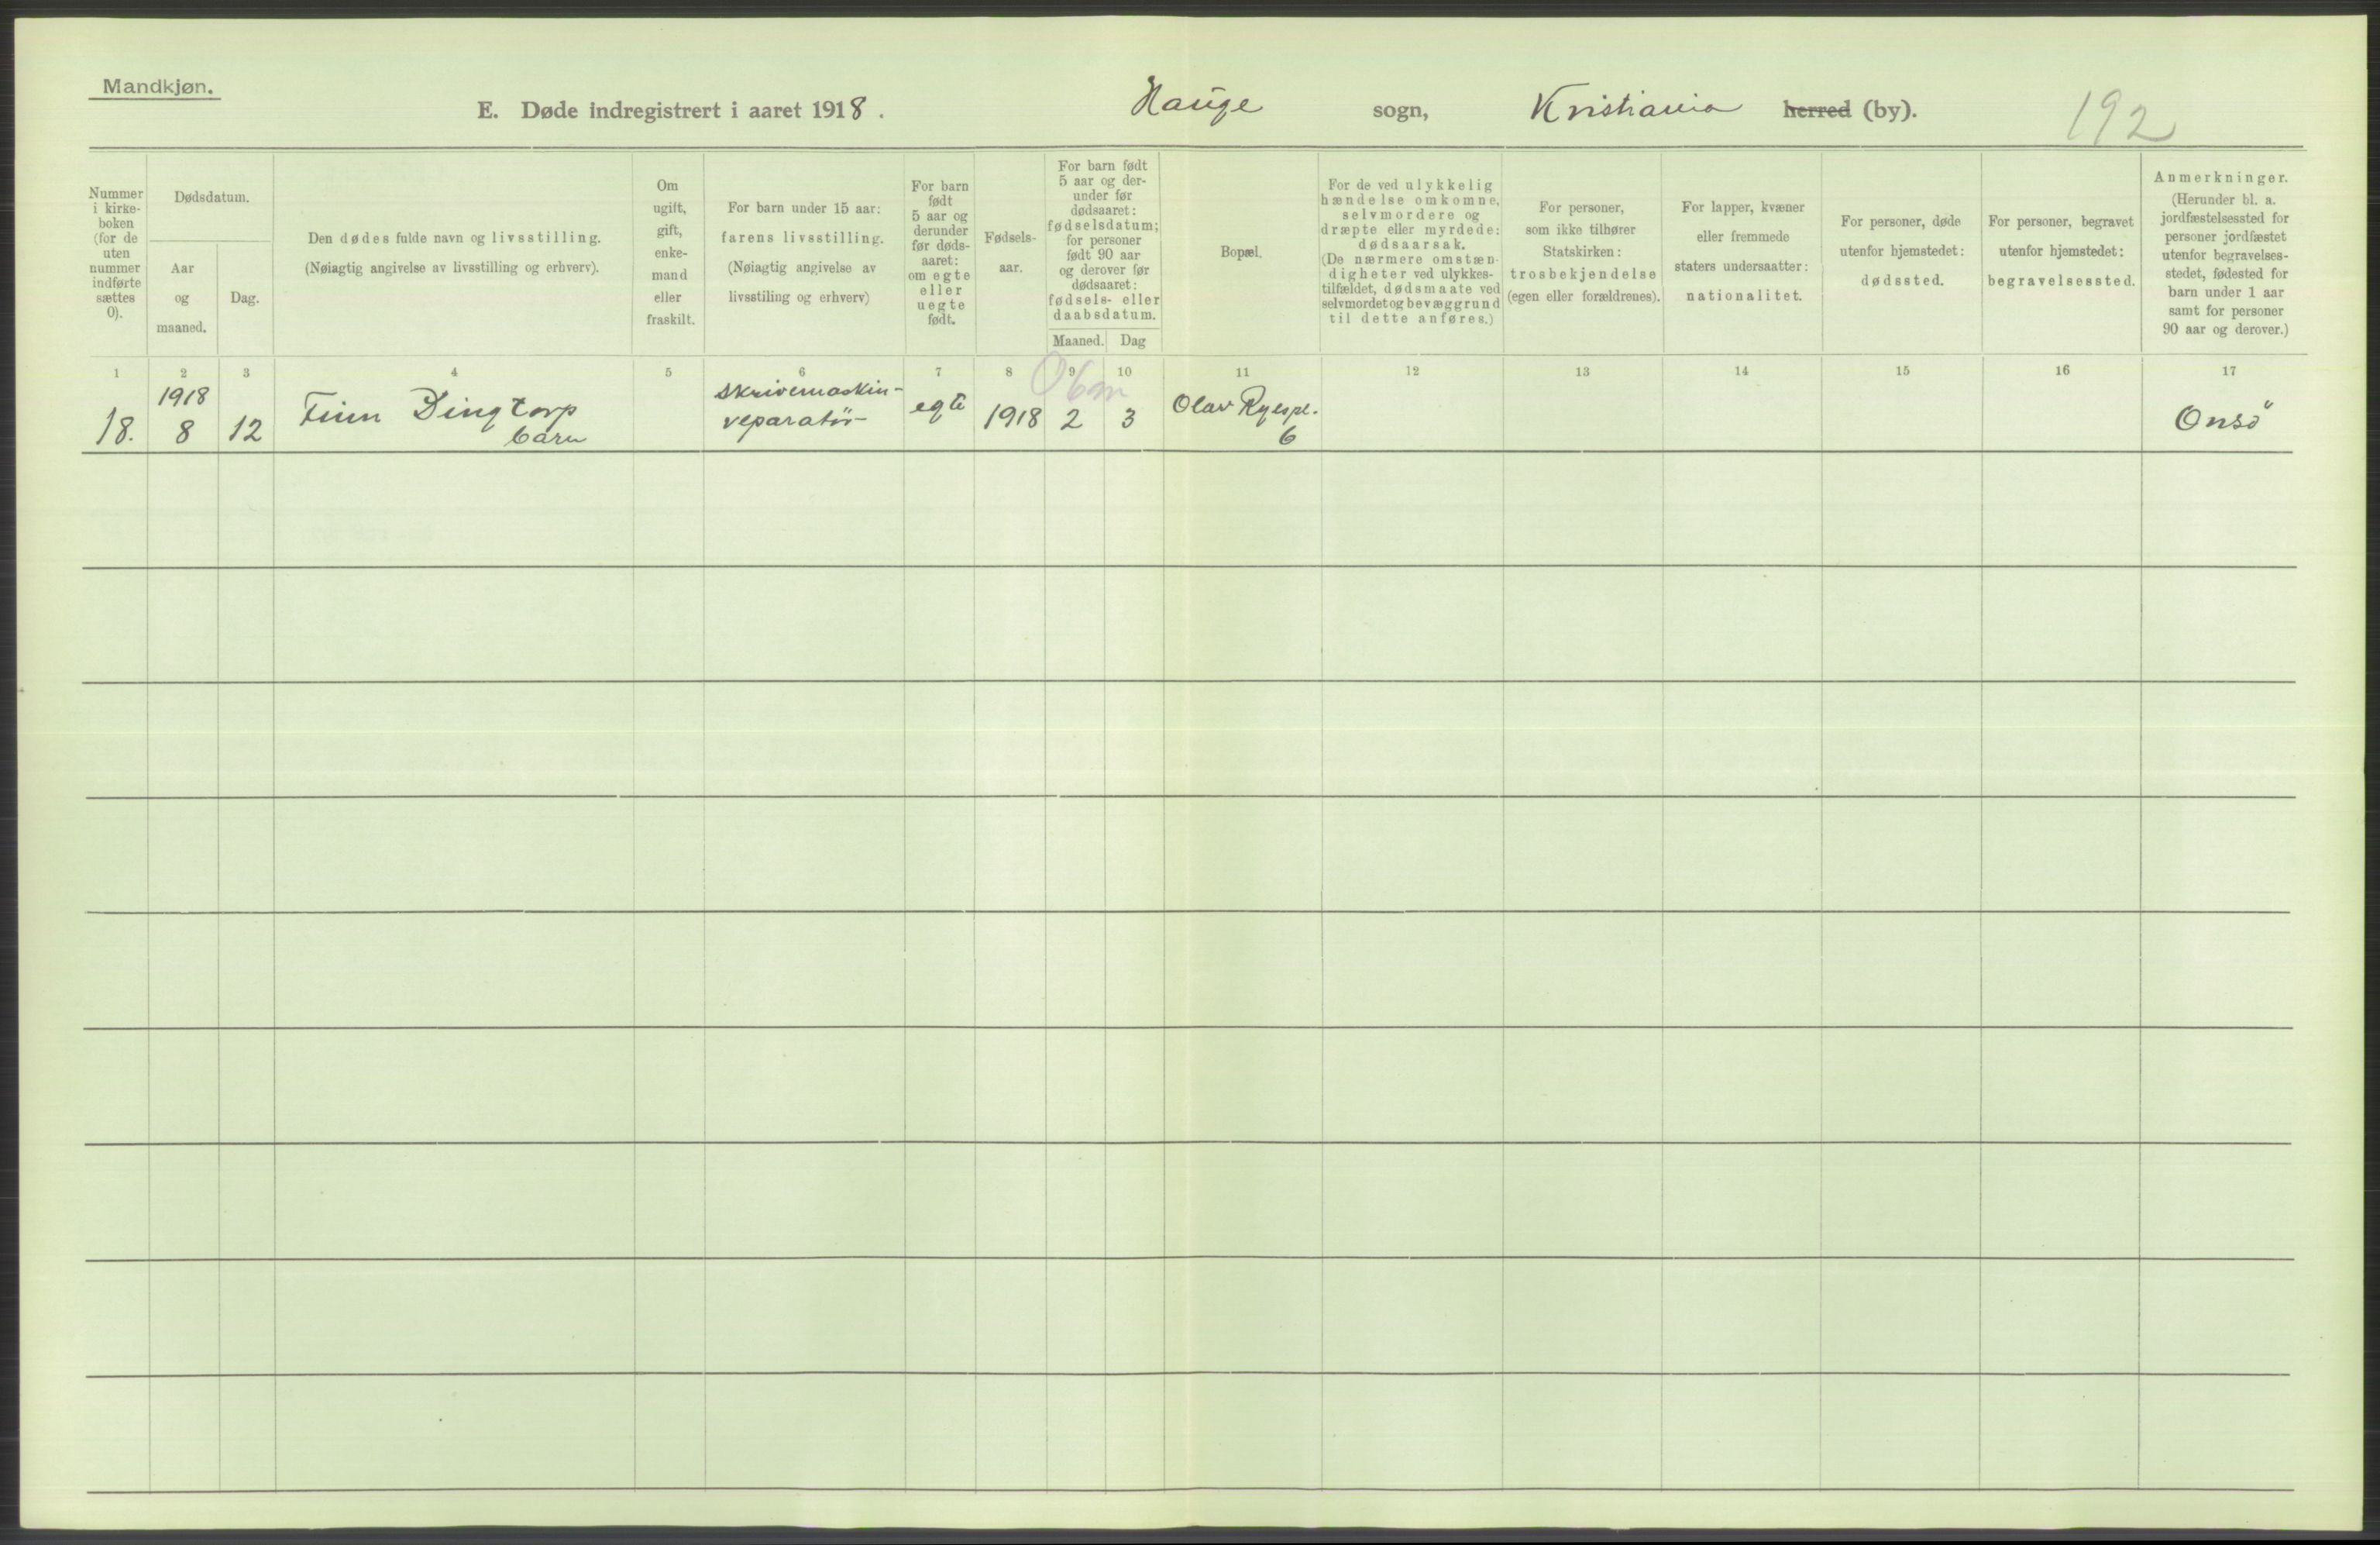 Mandkjøn.
E. Døde indregistrert i aaret 1918. Hauge sogn, Kristiania herred (by). 192
Nummer i kirke- boken (for de uten nummer indførte sættes 0).
Dødsdatum.
Aar og maaned.
Dag.
Den dødes fulde navn og livsstilling.
(Nøiagtig angivelse av livsstilling og erhverv).
Om ugift, gift, enke- mand eller fraskilt.
For barn under 15 aar:
farens livsstilling.
(Nøiagtig angivelse av
livsstiling og erhverv)
For barn født 5 aar og derunder før døds- aaret: om egte eller uegte født.
Fødsels- aar.
For barn født 5 aar og der- under før dødsaaret: fødselsdatum; for personer født 90 aar og derover før dødsaaret: fødsels- eller daabsdatum.
Maaned. Dag
Bopæl.
For de ved ulykkelig
hændelse omkomne,
selvmordere og
dræpte eller myrdede:
dødsaarsak.
(De nærmere omstæn-
digheter ved ulykkes-
tilfældet, dødsmaate ved
selvmordet og bevæggrund
til dette anføres.)
For personer,
som ikke tilhører
Statskirken:
trosbekjendelse
(egen eller forældrenes).
For lapper, kvæner
eller fremmede
staters undersaatter:
nationalitet.
For personer, døde
utenfor hjemstedet:
dødssted.
For personer, begravet
utenfor hjemstedet:
begravelsessted.
Anmerkninger.
(Herunder bl. a.
jordfæstelsessted for
personer jordfæstet
utenfor begravelses-
stedet, fødested for
barn under 1 aar
samt for personer
90 aar og derover.)
1 2 3 4 5 6 7 8 9 10 11 12 13 14 15 16 17
06m
1918 skrivemaskin-
18. 8 12 Finn Dingtorp egte 1918 2 3 Olav Ryespl. Onsö
barn reparatör 6